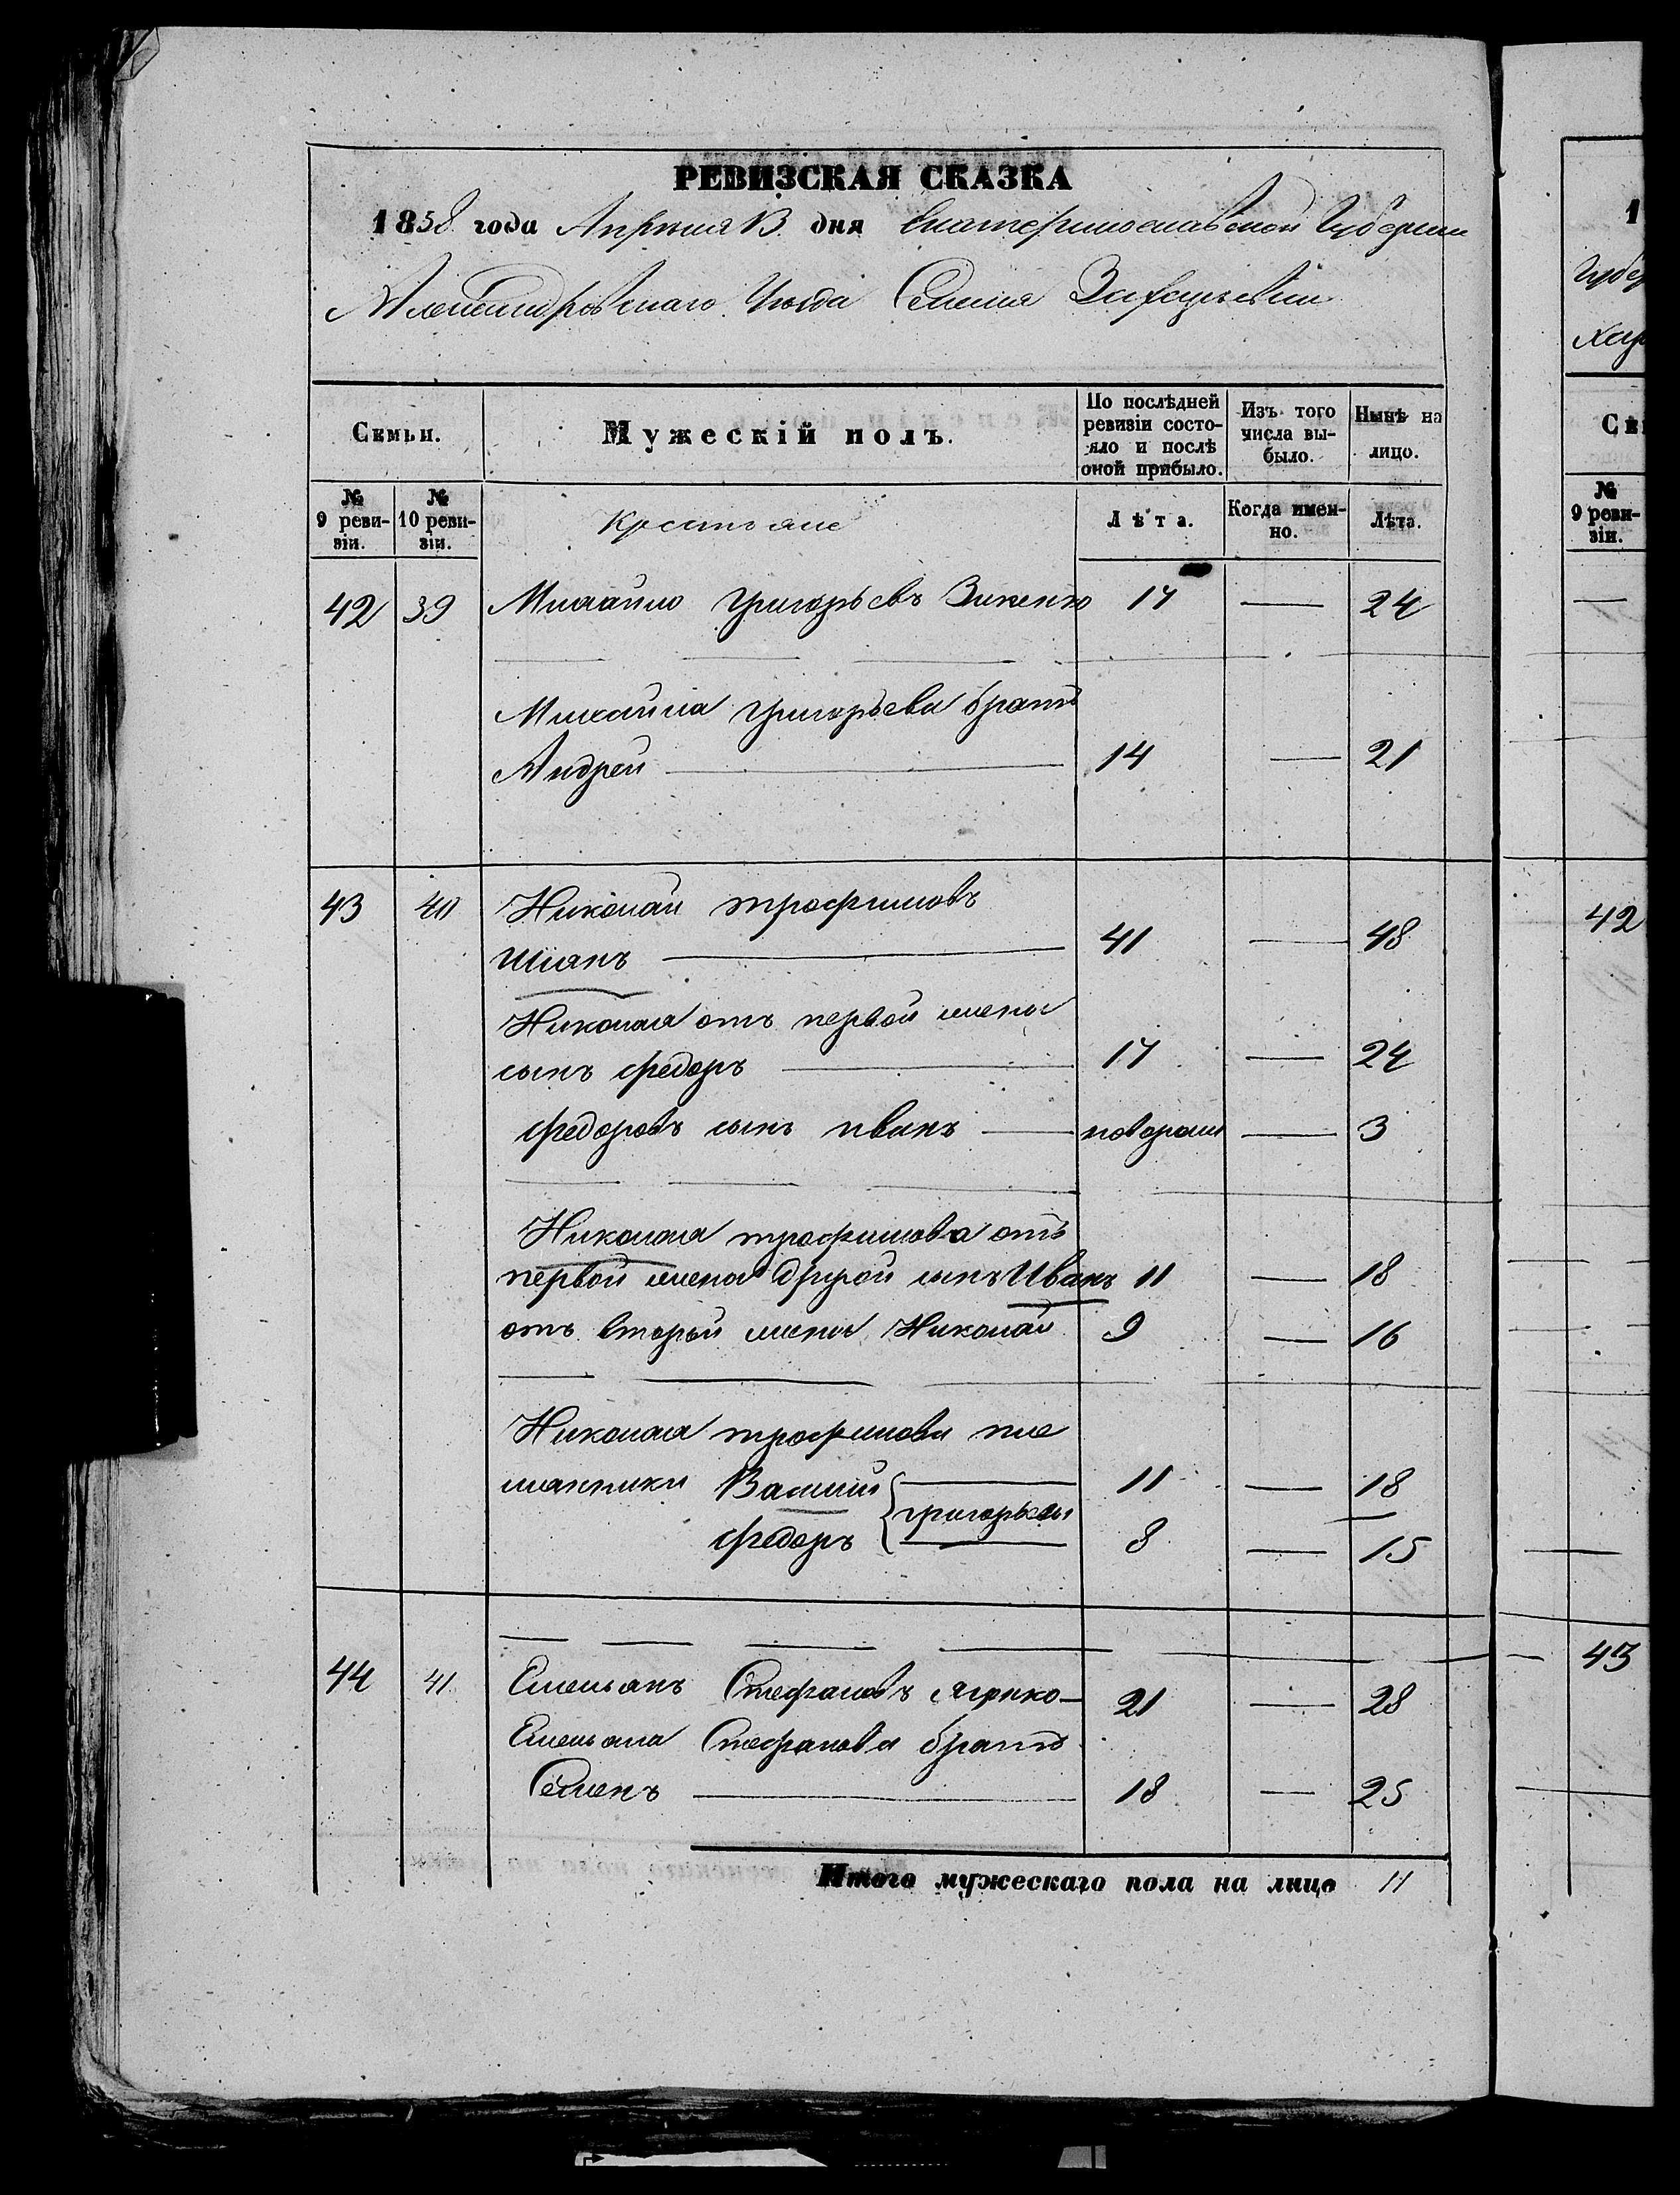 РЕВИЗСКАЯ СКАЗКА
1858 года Апреля 13 дня Екатеринославской Губернии
Александровскаго Уезда Селения
Семьи.
Мужескій полъ.
По послѣдней ревизіи состояло и послѣ оной прибыло.
Изъ того числа выбыло.
Нынѣ на лицо.
№ 9 ревизіи.
№ 10 ревизіи.
Крестьяне
Лѣта.
Когда именно.
Лѣта.
42 39 Михайло Григорьевъ Зикенко 17 — 24
Михайла Григорьева братъ
Андрей 14 — 21
43 40 Николай трофимовъ
Шіянъ 41 — 48
Николая отъ первой жены
сынъ федоръ 17 — 24
федоровъ сынъ иванъ — новорожд — 3
Николая трофимова отъ
первой жены другой сынъ Иванъ 11 — 18
отъ второй жены Николай 9 — 16
Николая трофимова пле
мянники Василий 11 — 18
григорьевы
федоръ 8 — 15
44 41 Емельянъ Стефановъ 21 — 28
Емельяна Стефанова братъ
Семенъ 18 — 25
Итого мужескаго пола на лицо 11
1
Губер
Хар
Се
№
9 реви-
зіи.
42
43